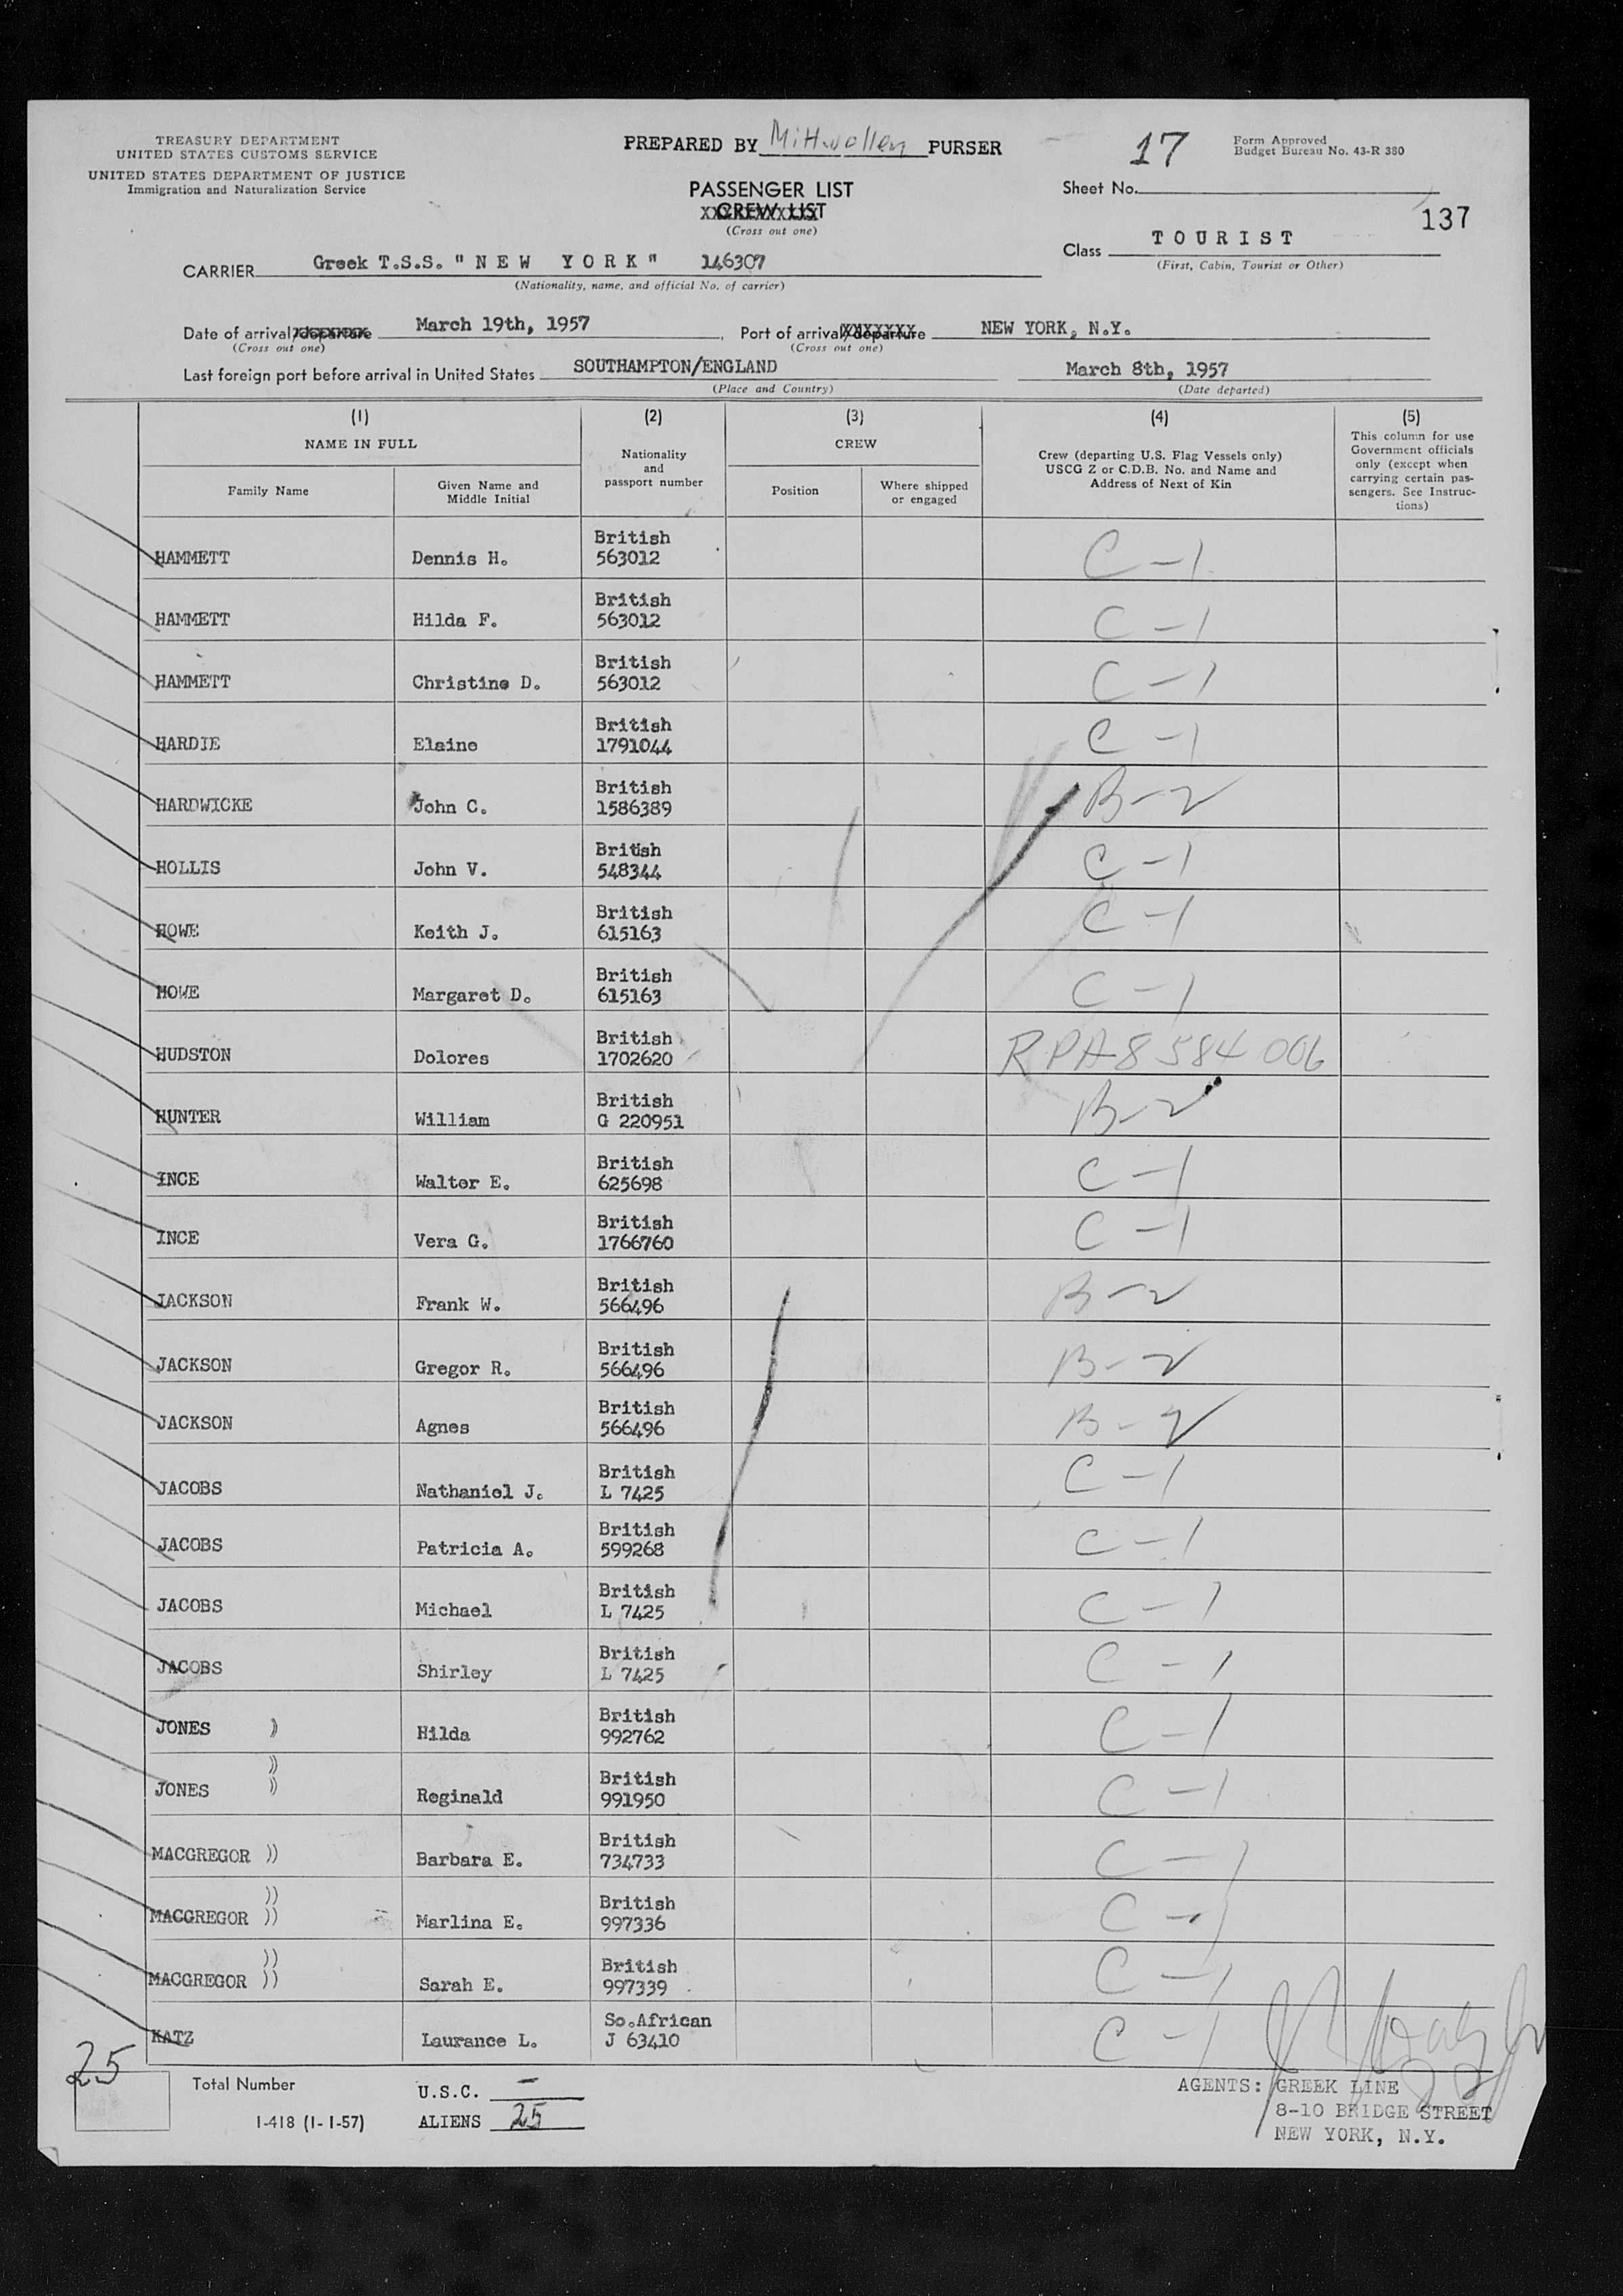 TREASURY DEPARTMENT
UNITED STATES CUSTOMS SERVICE
UNITED STATES DEPARTMENT OF JUSTICE
Immigration and Naturalization Service
PREPARED BY Mittwollen PURSER
PASSENGER LIST
CREW LIST
(Cross out one)
17
Form Approved
Budget Bureau No. 43-R 380
Sheet No.
137
Class TOURIST
(First, Cabin, Tourist or Other)
CARRIER Greek T.S.S. "NEW YORK" 146307
(Nationality, name, and official No. of carrier)
Date of arrival/departure March 19th, 1957, Port of arrival/departure NEW YORK, N.Y.
(Cross out one) (Cross out one)
Last foreign port before arrival in United States SOUTHAMPTON/ENGLAND March 8th, 1957
(Place and Country) (Date departed)
(1) (2) (3) (4) (5)
NAME IN FULL
Family Name
Given Name and
Middle Initial
Nationality
and
passport number
CREW
Position
Where shipped
or engaged
Crew (departing U.S. Flag Vessels only)
USCG Z or C.D.B. No. and Name and
Address of Next of Kin
This column for use
Government officials
only (except when
carrying certain pas-
sengers. See Instruc-
tions)
British
HAMMETT Dennis H. 563012 C-1
British
HAMMETT Hilda F. 563012 C-1
British
HAMMETT Christine D. 563012 C-1
British
HARDIE Elaine 1791044 C-1
British
HARDWICKE John C. 1586389 B-2
British
HOLLIS John V. 548344 C-1
British
HOWE Keith J. 615163 C-1
British
HOWE Margaret D. 615163 C-1
British
HUDSTON Dolores 1702620 RPA8 584 006
British
HUNTER William G 220951 B-2
British
INCE Walter E. 625698 C-1
British
INCE Vera G. 1766760 C-1
British
JACKSON Frank W. 566496 B-2
British
JACKSON Gregor R. 566496 B-2
British
JACKSON Agnes 566496 B-2
British
JACOBS Nathaniel J. L 7425 C-1
British
JACOBS Patricia A. 599268 C-1
British
JACOBS Michael L 7425 C-1
British
JACOBS Shirley L 7425 C-1
British
JONES ) Hilda 992762 C-1
)) British
JONES )) Reginald 991950 C-1
British
MACGREGOR )) Barbara E. 734733 C-1
)) British
MACGREGOR )) Marlina E. 997336 C-1
)) British
MACGREGOR )) Sarah E. 997339 C-1
So.African
KATZ Laurance L. J 63410 C-1
25
Total Number
I-418 (1-1-57)
U.S.C. -
ALIENS 25
AGENTS: GREEK LINE
8-10 BRIDGE STREET
NEW YORK, N.Y.